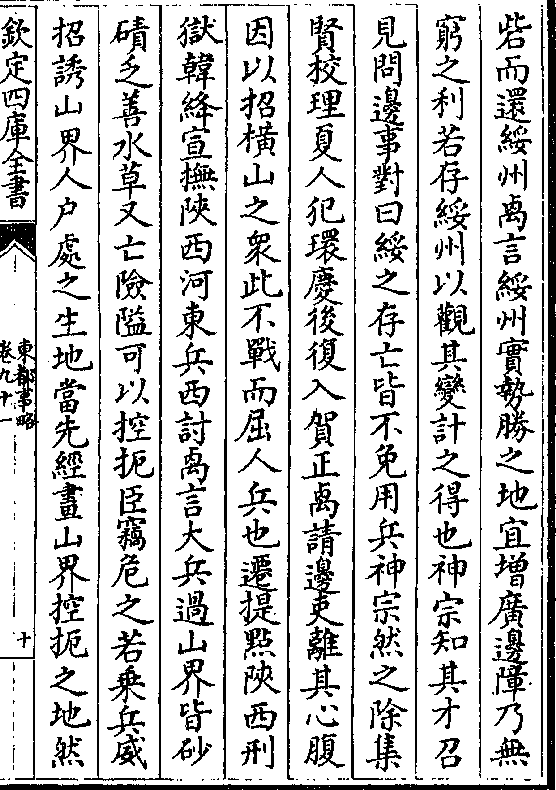 砦而還綏州卨言綏州實勢勝之地宜增廣邊障乃無
窮之利若存綏州以觀其變計之得也神宗知其才召
見問邊事對曰綏之存亡皆不免用兵神宗然之除集
賢校理夏人犯環慶後復入賀正卨請邊吏離其心腹
因以招橫山之衆此不戰而屈人兵也遷提點陝西刑
獄韓絳宣撫陝西河東兵西討卨言大兵過山界皆砂
磧乏善水草又亡險隘可以控扼臣竊危之若乗兵威
招誘山界人户處之生地當先經畫山界控扼之地然
欽定四庫全書
東都事略
卷九十一
十